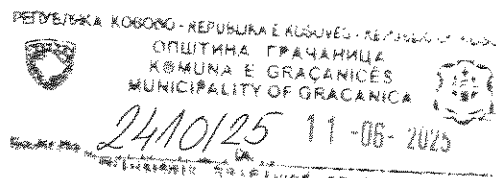 РЕПУБЛИКА КОСОВО - REPUBLIKA E KOSOVËS -
ОПШТИНА ГРАЧАНИЦА
KOMUNA E GRAÇANICËS
MUNICIPALITY OF GRACANICA
2410/25 11-06-2025